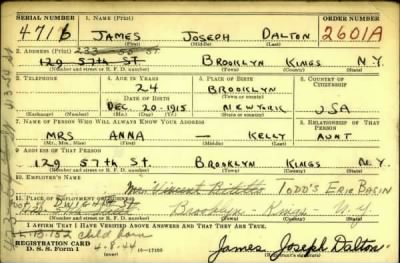 SERIAL NUMBER 1. NAME (Print) ORDER NUMBER
4716 JAMES JOSEPH DALTON 2601A
(First) (Middle) (Last)
2. ADDRESS (Print) 233 - 50 ST
129 57TH ST. BROOKLYN KINGS N.Y.
(Number and street or R. F. D. number) (Town) (County) (State)
3. TELEPHONE 4. AGE IN YEARS 5. PLACE OF BIRTH 6. COUNTRY OF CITIZENSHIP
24 BROOKLYN
DATE OF BIRTH
DEC. 20 - 1915 NEW YORK USA
7. NAME OF PERSON WHO WILL ALWAYS KNOW YOUR ADDRESS 8. RELATIONSHIP OF THAT PERSON
MRS ANNA — KELLY AUNT
(Mr., Mrs., Miss) (First) (Middle) (Last)
9. ADDRESS OF THAT PERSON
129 57TH ST. BROOKLYN KINGS N.Y.
(Number and street or R. F. D. number) (Town) (County) (State)
10. EMPLOYER'S NAME
Vincent TODD'S ERIE BASIN
11. PLACE OF EMPLOYMENT OR BUSINESS
Brooklyn Kings N.Y.
(Number and street or R. F. D. number) (Town) (County) (State)
I AFFIRM THAT I HAVE VERIFIED ABOVE ANSWERS AND THAT THEY ARE TRUE.
child born
REGISTRATION CARD 4-8-44
D. S. S. Form 1 16-17105 James Joseph Dalton